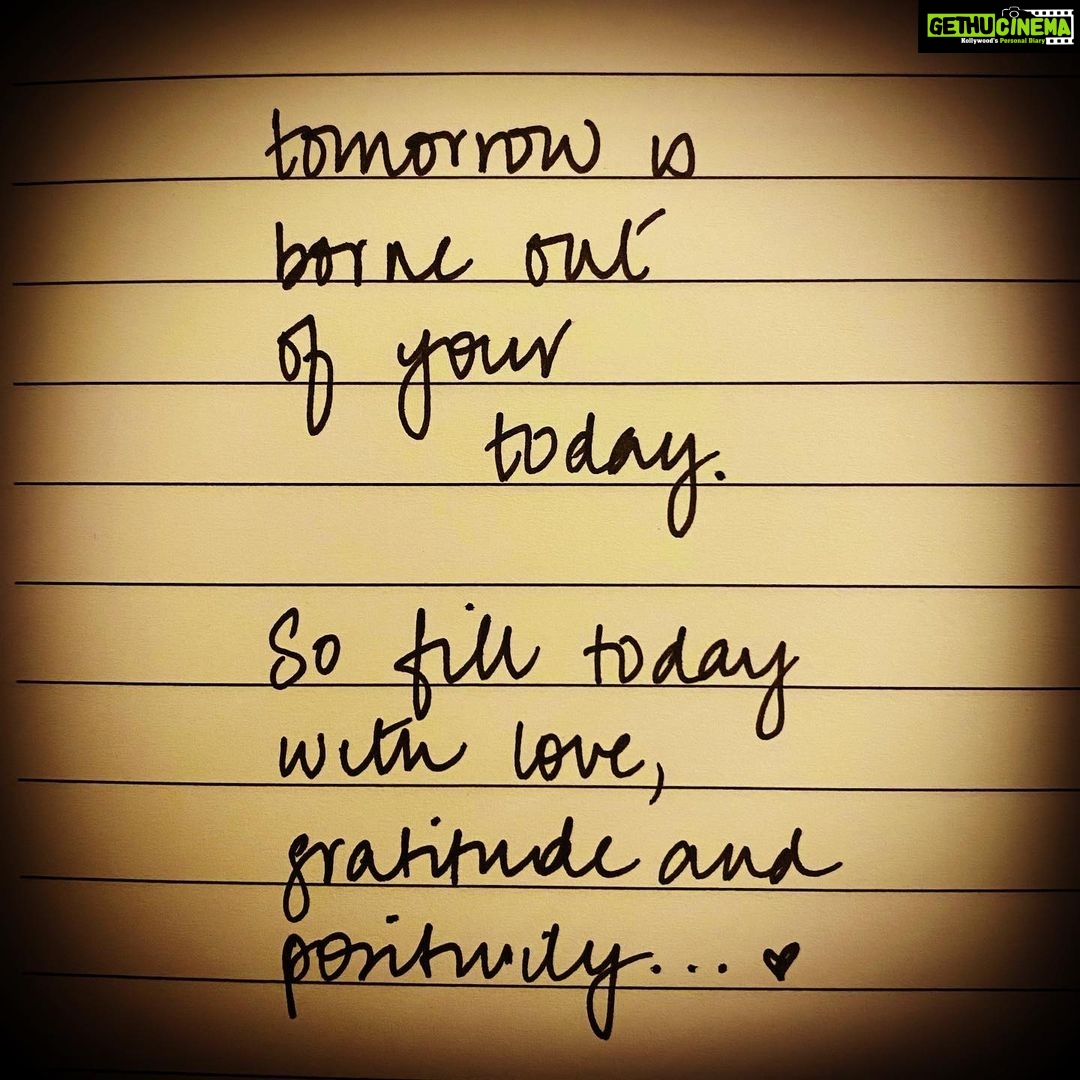 GETHUCINEMA
Kollywood's Personal Diary
tomorrow is
borne out
of your
today.
So fill today
with love,
gratitude and
positivity... ♥